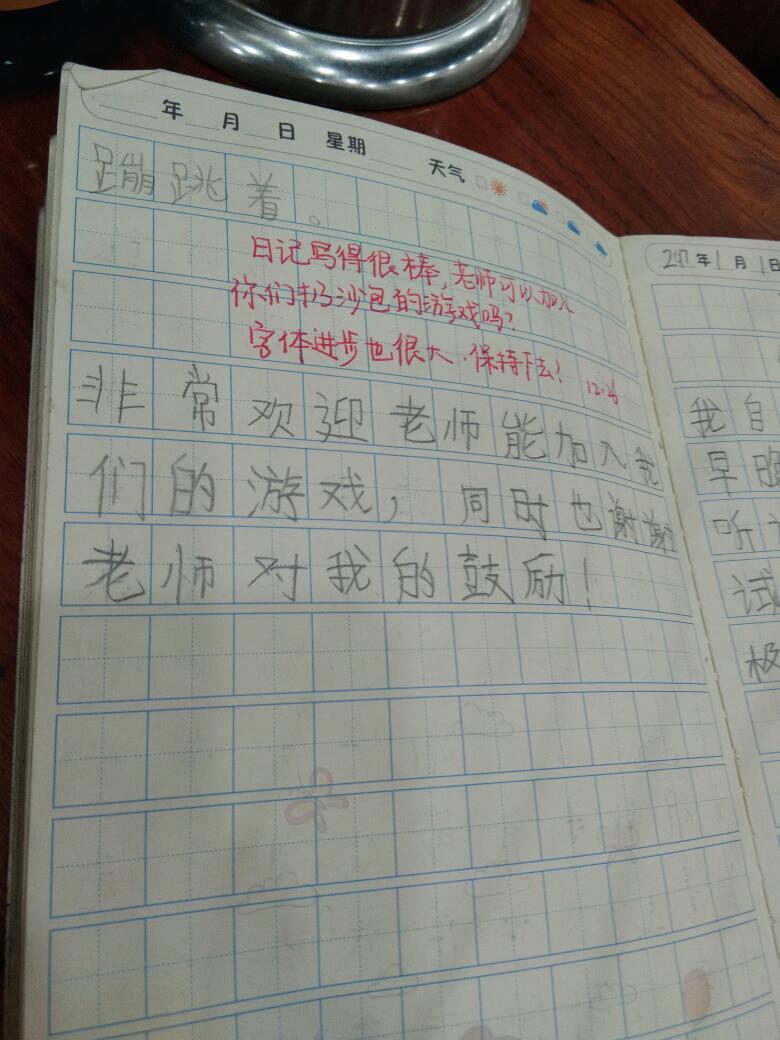 年 月 日 星期 天气
蹦跳着。
日记写得很棒，老师可以加入
你们扔沙包的游戏吗？
字体进步也很大，保持下去！ 12.26
非常欢迎老师能加入我
们的游戏，同时也谢谢
老师对我的鼓励！
2017年1月1日
我自
早
听
试
极